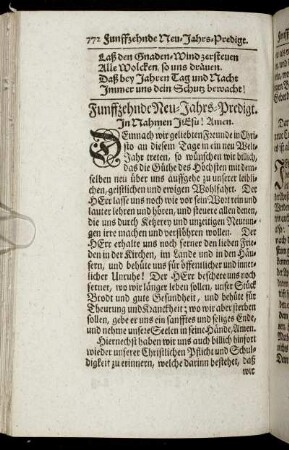 772 Funffzehnde Neu-Jahrs-Predigt.
Laß den Gnaden-Wind zerstreuen
Alle Wolcken, so uns dräuen.
Daß bey Jahren Tag und Nacht
Immer uns dein Schutz bewacht!
Funffzehnde Neu-Jahrs-Predigt.
In Nahmen JEsu! Amen.
DEmnach wir geliebten Freunde in Chri-
sto an diesem Tage in ein neu Welt-
Jahr treten, so wünschen wir billich,
das die Güthe des Höchsten mit dem-
selben neu über uns auffgehe zu unserer leibli-
chen, geistlichen und ewigen Wohlfahrt. Der
HErr lasse uns noch wie vor sein Wort rein und
lauter lehren und hören, und steuere allen denen,
die uns durch Ketzerey und unzeitigen Neurun-
gen irre machen und verführen wollen. Der
HErr erhalte uns noch ferner den lieben Frie-
den in der Kirchen, im Lande und in den Häu-
sern, und behüte uns für öffentlicher und inner-
licher Unruhe! Der HErr beschere uns noch
ferner, wo wir länger leben sollen, unser Stück
Brodt und gute Gesundheit, und behüt für
Theurung und Kranckheit; wo wir aber sterben
sollen, gebe er uns ein sanfftes und seliges Ende,
und nehme unsere Seelen in seine Hände, Amen.
Hiernechst haben wir uns auch billich hinfort
wieder unserer Christlichen Pflicht und Schul-
digkeit zu erinnern, welche darinn bestehet, daß
wir